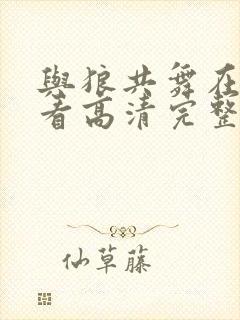 與狼共舞在
看高清完整
仙草藤